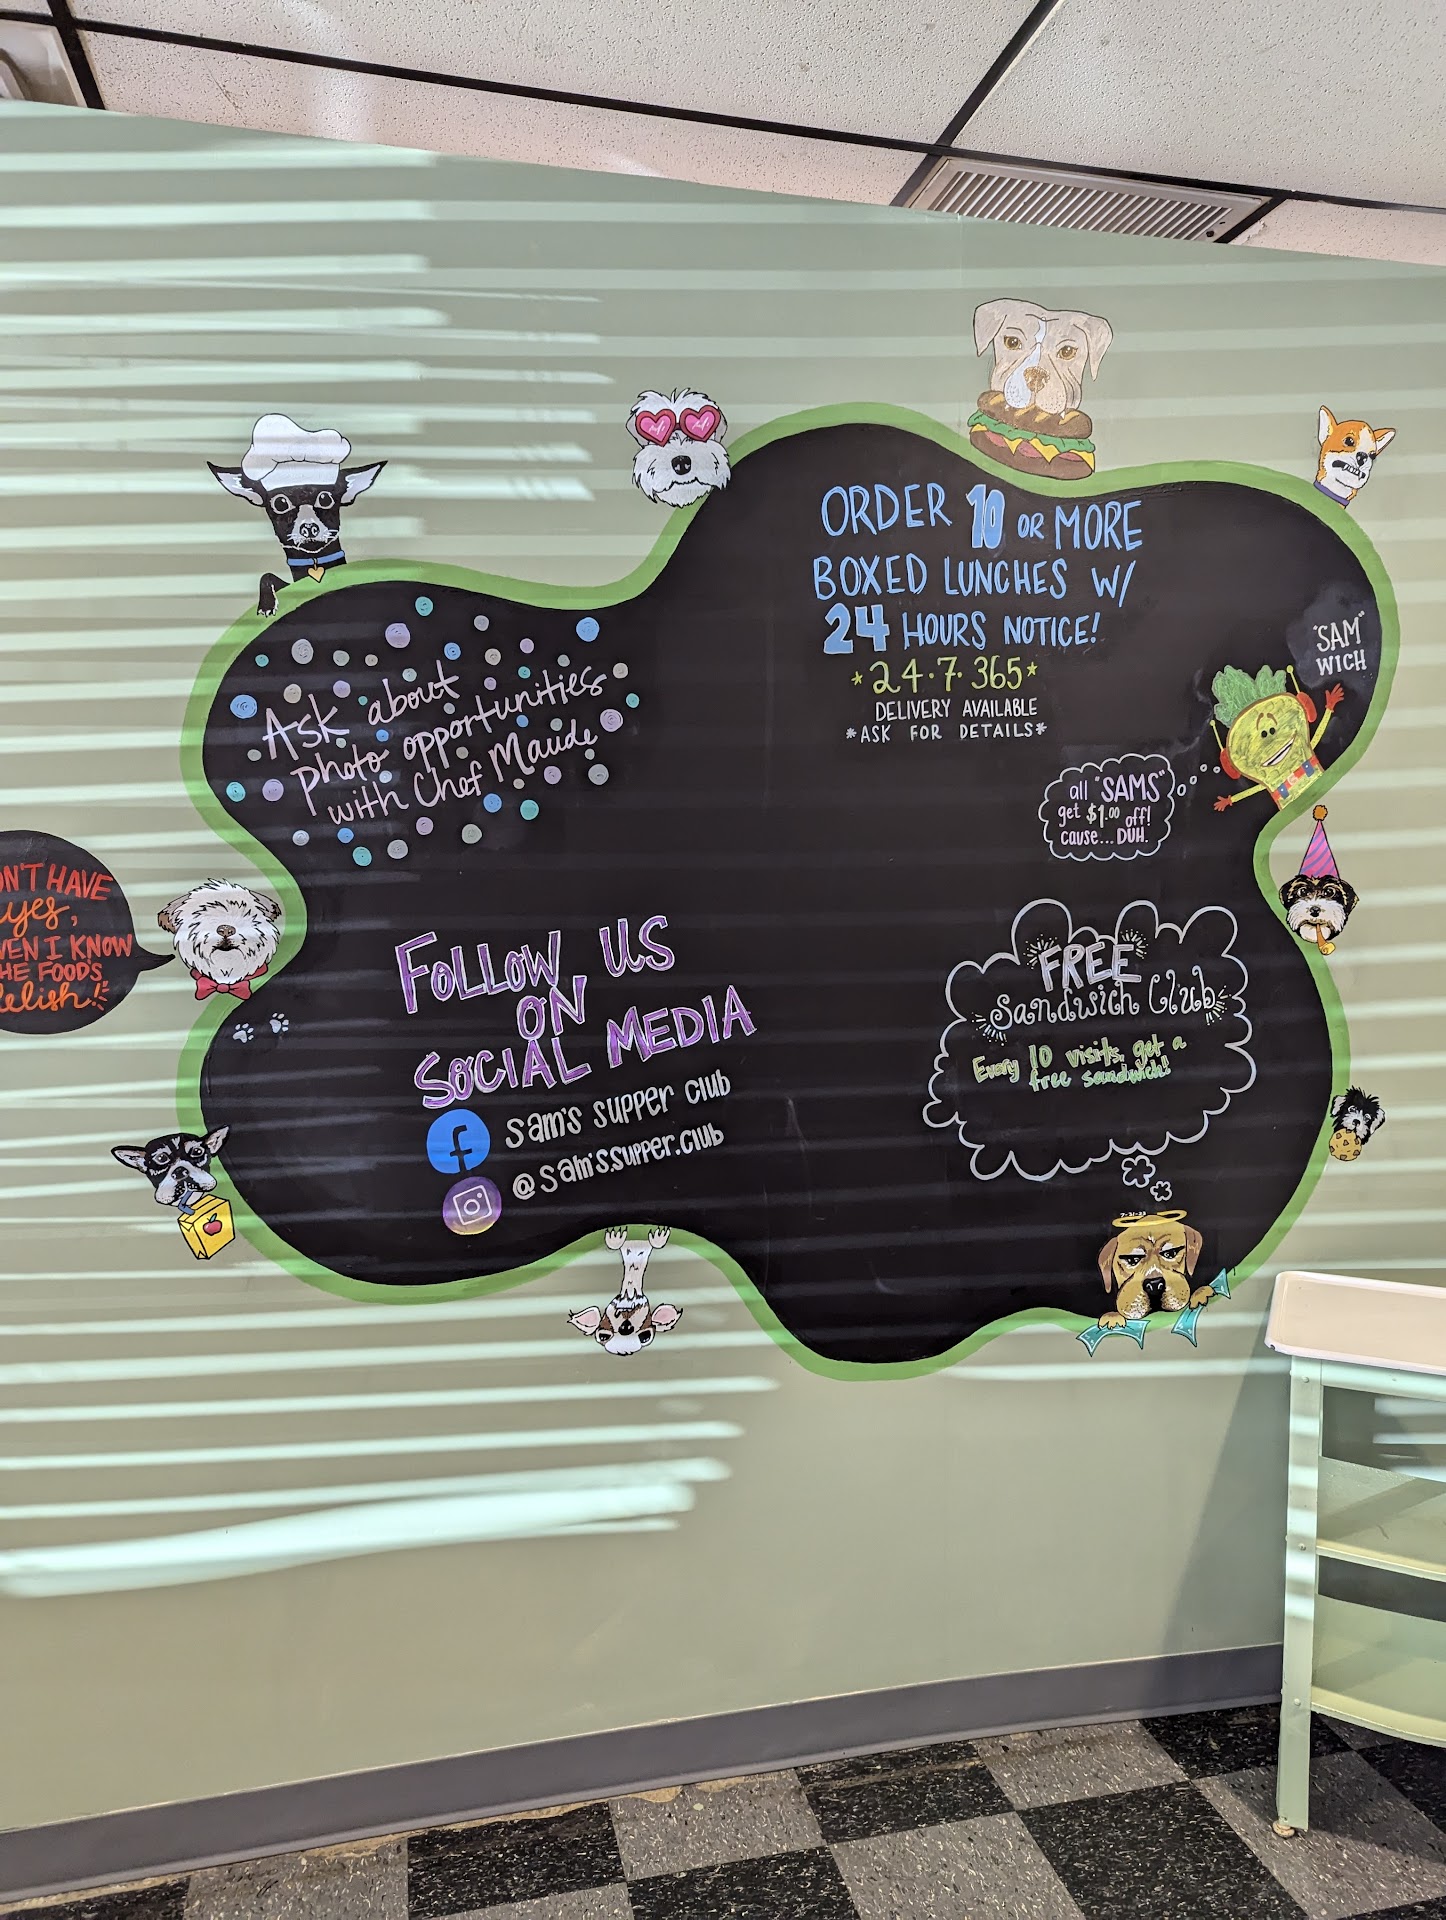 ORDER 10 OR MORE
BOXED LUNCHES W/
24 HOURS NOTICE!
*24·7·365*
DELIVERY AVAILABLE
*ASK FOR DETAILS*
"SAM"
WICH
Ask about
photo opportunities
with Chef Maude
all "SAMS"
get $1.00 off!
cause... DUH.
HAVE
eyes,
I KNOW
FOODS
FOLLOW US
ON
SOCIAL MEDIA
f sam's supper club
@sam's.supper.club
FREE
Sandwich Club
Every 10 visits, get a
free sandwich!
7-31-23